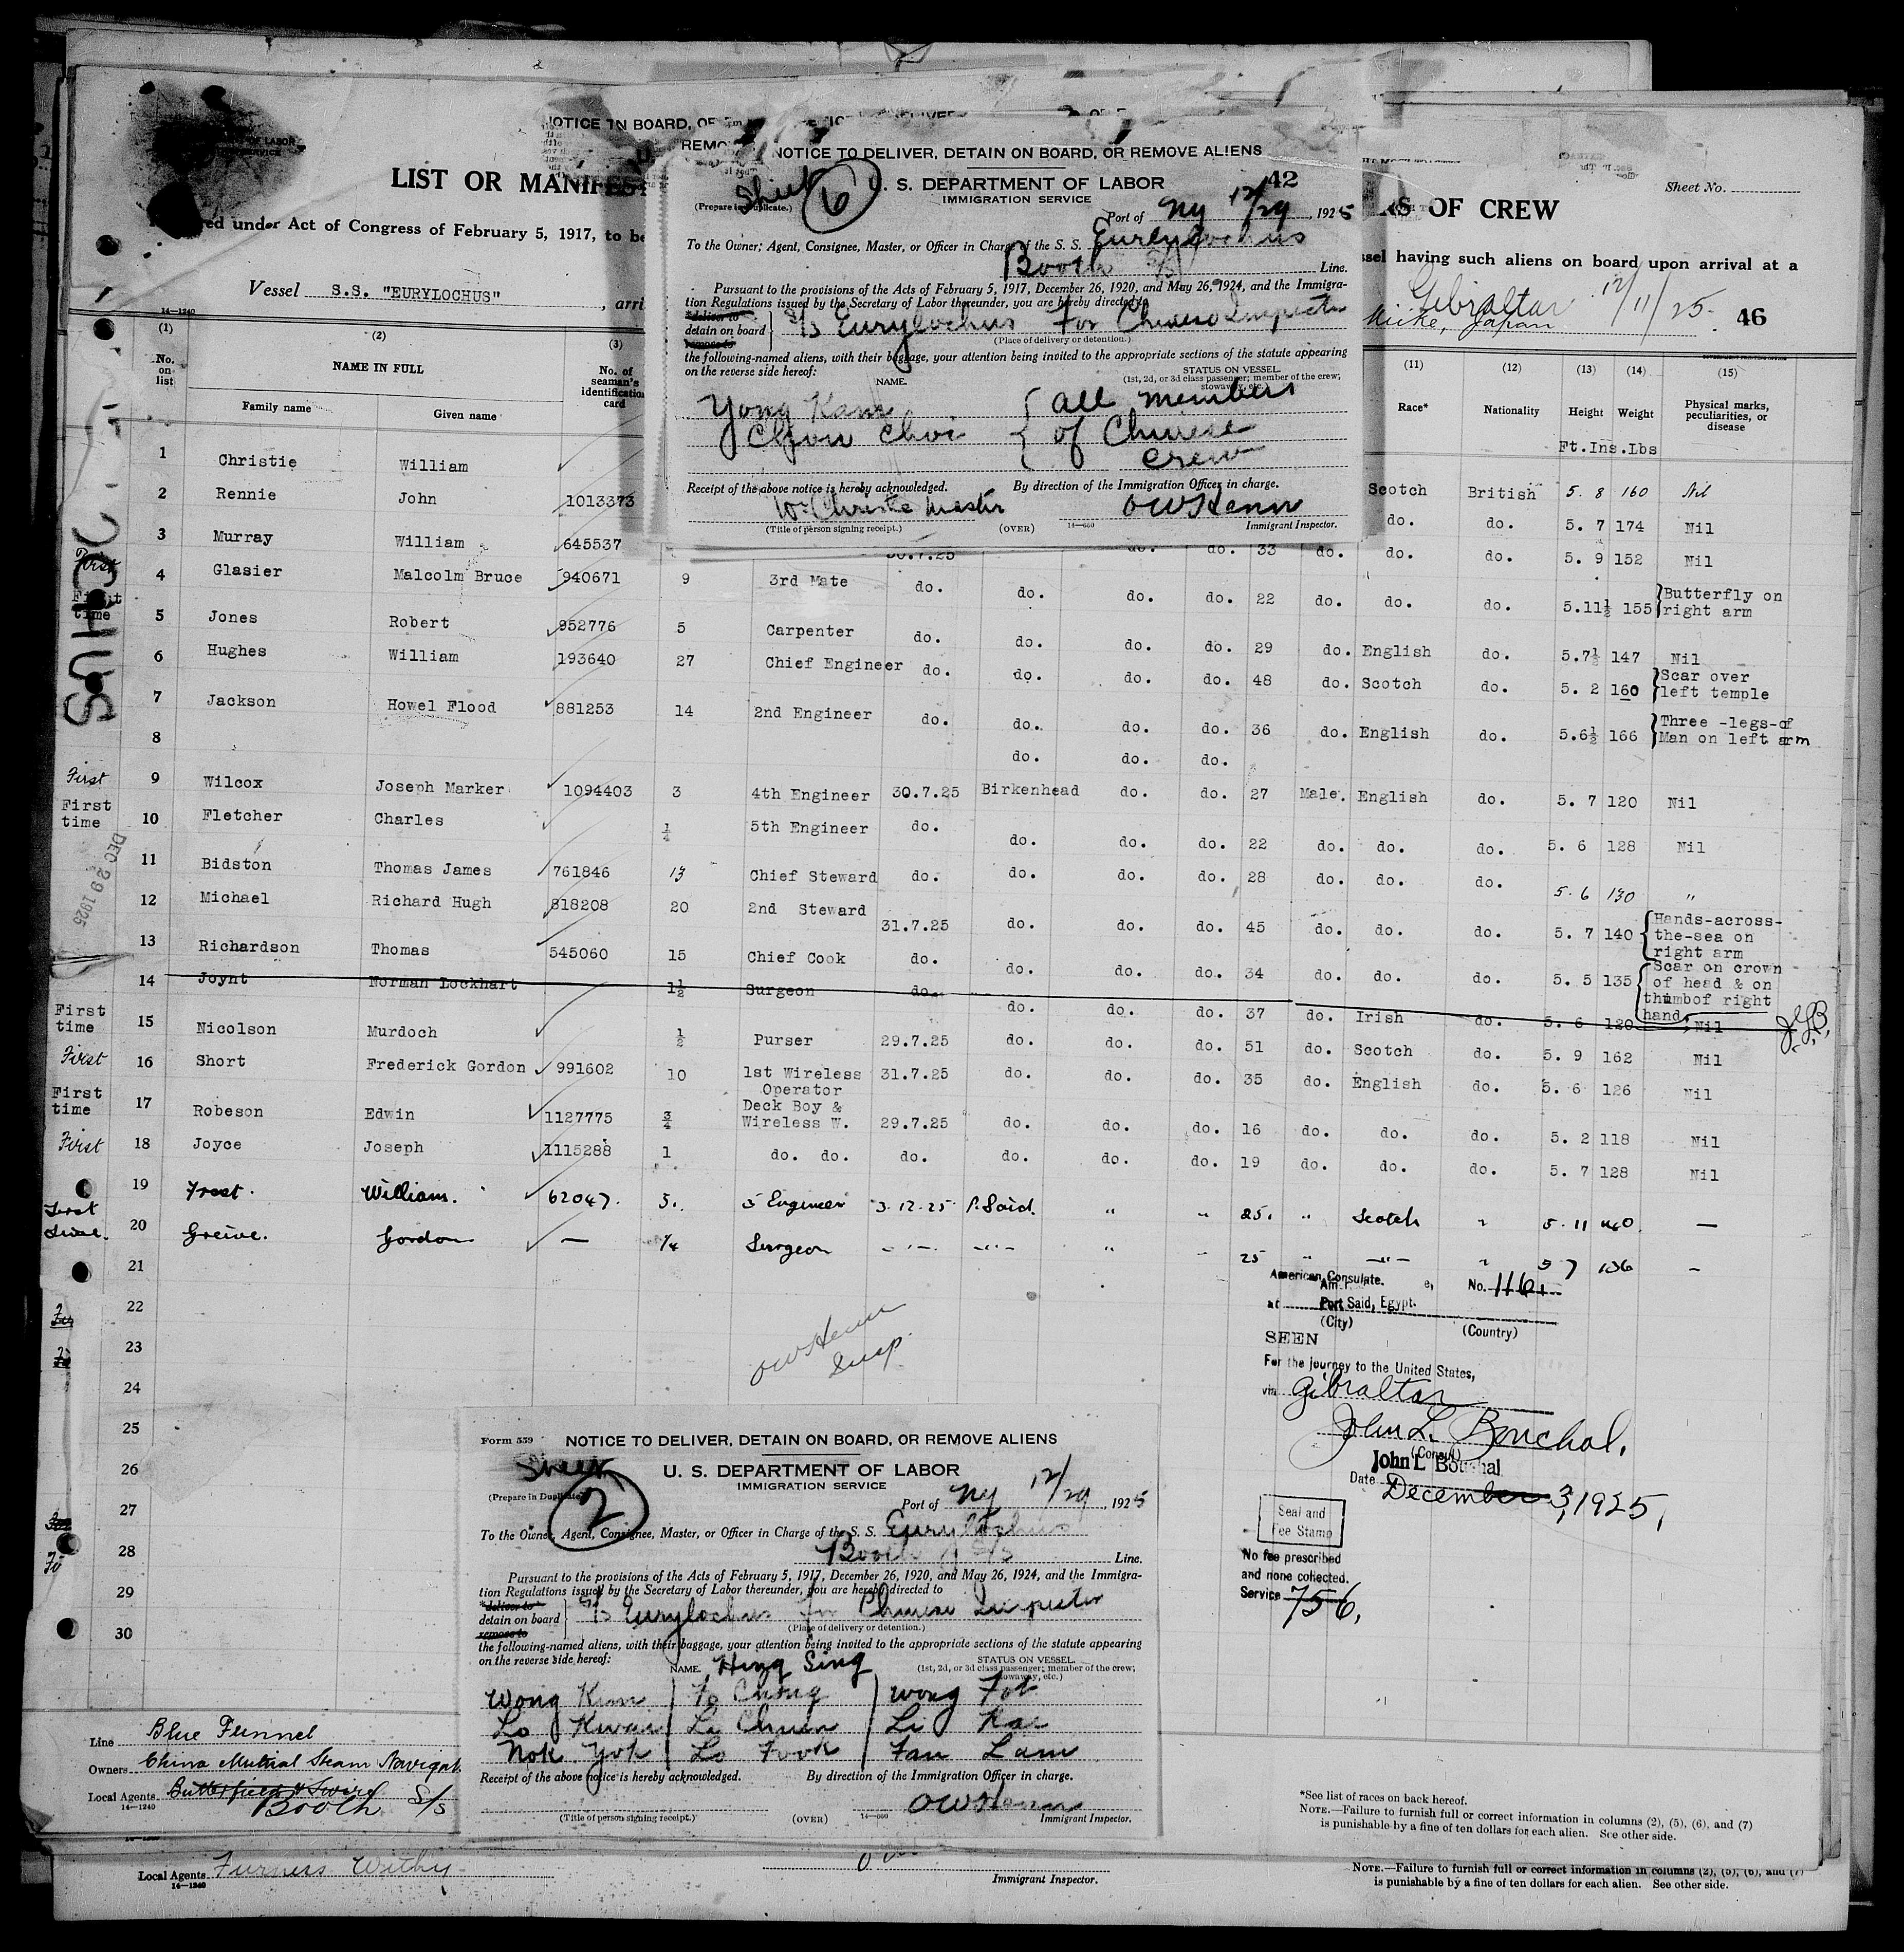 NOTICE TO DELIVER, DETAIN ON BOARD, OR REMOVE ALIENS
42
Sheet 6
U. S. DEPARTMENT OF LABOR
IMMIGRATION SERVICE
(Prepare in Duplicate.)
Port of NY 12/29, 1925
To the Owner, Agent, Consignee, Master, or Officer in Charge of the S. S. Eurylochus
Booth S/S Line.
Pursuant to the provisions of the Acts of February 5, 1917, December 26, 1920, and May 26, 1924, and the Immigra-
tion Regulations issued by the Secretary of Labor thereunder, you are hereby directed to
*deliver to
detain on board S/S Eurylochus For Chinese Inspector
remove to
(Place of delivery or detention.)
the following-named aliens, with their baggage, your attention being invited to the appropriate sections of the statute appearing
on the reverse side hereof:
NAME.
STATUS ON VESSEL
(1st, 2d, or 3d class passenger; member of the crew; stowaway, etc.)
Yong Kam all members
Chow Choi of Chinese
crew
Receipt of the above notice is hereby acknowledged.
By direction of the Immigration Officer in charge.
Wm Christie Master
OWHenn
(Title of person signing receipt.)
(OVER)
14—660
Immigrant Inspector.
LIST OR MANIFEST
RS OF CREW
Sheet No.
red under Act of Congress of February 5, 1917, to be
ssel having such aliens on board upon arrival at a
Vessel S.S. "EURYLOCHUS", arri
Gibraltar 12/11/25.
Miike, Japan
46
14—1240
(1) (2) (3) (11) (12) (13) (14) (15)
No. on list
NAME IN FULL
Family name Given name
No. of seaman's identification card
Race* Nationality Height Weight Physical marks, peculiarities, or disease
Ft.Ins.Lbs
1 Christie William Scotch British 5. 8 160 Nil
2 Rennie John 1013373 do. do. 5. 7 174 Nil
3 Murray William 645537 30.7.25 do. do. 33 do. do. do. 5. 9 152 Nil
First 4 Glasier Malcolm Bruce 940671 9 3rd Mate do. do. do. do. 22 do. do. do. 5.11½ 155 Butterfly on right arm
First time 5 Jones Robert 952776 5 Carpenter do. do. do. do. 29 do. English do. 5.7½ 147 Nil
6 Hughes William 193640 27 Chief Engineer do. do. do. do. 48 do. Scotch do. 5. 2 160 Scar over left temple
7 Jackson Howel Flood 881253 14 2nd Engineer do. do. do. do. 36 do. English do. 5.6½ 166 Three -legs-of Man on left arm
8 do. do. do.
First 9 Wilcox Joseph Marker 1094403 3 4th Engineer 30.7.25 Birkenhead do. do. 27 Male. English do. 5. 7 120 Nil
First time 10 Fletcher Charles ¼ 5th Engineer do. do. do. do. 22 do. do. do. 5. 6 128 Nil
11 Bidston Thomas James 761846 13 Chief Steward do. do. do. do. 28 do. do. do. 5. 6 130 "
12 Michael Richard Hugh 818208 20 2nd Steward 31.7.25 do. do. do. 45 do. do. do. 5. 7 140 Hands-across-the-sea on right arm
13 Richardson Thomas 545060 15 Chief Cook do. do. do. do. 34 do. do. do. 5. 5 135 Scar on crown of head & on thumb of right hand.
14 Joynt Norman Lockhart 1½ Surgeon do. do. do. do. 37 do. Irish do. 5. 6 120 Nil
First time 15 Nicolson Murdoch ½ Purser 29.7.25 do. do. do. 51 do. Scotch do. 5. 9 162 Nil
First 16 Short Frederick Gordon 991602 10 1st Wireless Operator 31.7.25 do. do. do. 35 do. English do. 5. 6 126 Nil
First time 17 Robeson Edwin 1127775 ¾ Deck Boy & Wireless W. 29.7.25 do. do. do. 16 do. do. do. 5. 2 118 Nil
First 18 Joyce Joseph 1115288 1 do. do. do. do. do. do. 19 do. do. do. 5. 7 128 Nil
19 Frost. William. 62047. 5. 5 Engineer 3.12.25 P. Said. " " 25. " Scotch " 5. 11 140. —
First time. 20 Greive. Gordon — ¼ Surgeon " " " 25 " " " 5 7 136 —
21
22
23
24
25
26
27
28
29
30
DEC 29 1925
OWHenn
Insp.
American Consulate.
No. 1161
at Port Said, Egypt.
(City) (Country)
SEEN
For the journey to the United States,
via Gibraltar
John L. Bouchal.
(Consul)
John L Bouchal
Date December 3, 1925,
Seal and
Fee Stamp
No fee prescribed
and none collected.
Service 756.
Form 559
NOTICE TO DELIVER, DETAIN ON BOARD, OR REMOVE ALIENS
Sheet 2
U. S. DEPARTMENT OF LABOR
IMMIGRATION SERVICE
(Prepare in Duplicate.)
Port of NY 12/29, 1925
To the Owner, Agent, Consignee, Master, or Officer in Charge of the S. S. Eurylochus
Booth S/S Line.
Pursuant to the provisions of the Acts of February 5, 1917, December 26, 1920, and May 26, 1924, and the Immigra-
tion Regulations issued by the Secretary of Labor thereunder, you are hereby directed to
*deliver to
detain on board S/S Eurylochus for Chinese Inspector
remove to
(Place of delivery or detention.)
the following-named aliens, with their baggage, your attention being invited to the appropriate sections of the statute appearing
on the reverse side hereof:
NAME. Hing Sing
STATUS ON VESSEL.
(1st, 2d, or 3d class passenger; member of the crew; stowaway, etc.)
Wong Kum Fo Chong Wong Fot
Lo Kwai Le Chuen Li Kai
Nok Yok Lo Fook Fan Lam
Receipt of the above notice is hereby acknowledged.
By direction of the Immigration Officer in charge.
OWHenn
(Title of person signing receipt.)
(OVER)
14—660
Immigrant Inspector.
Line Blue Funnel
Owners China Mutual Steam Navigat
Local Agents Butterfield & Swire
14—1240
Booth S/S
*See list of races on back hereof.
NOTE.—Failure to furnish full or correct information in columns (2), (5), (6), and (7)
is punishable by a fine of ten dollars for each alien. See other side.
Local Agents Furness Withy
14—1240
Immigrant Inspector.
NOTE.—Failure to furnish full or correct information in columns (2), (5), (6), and (7)
is punishable by a fine of ten dollars for each alien. See other side.